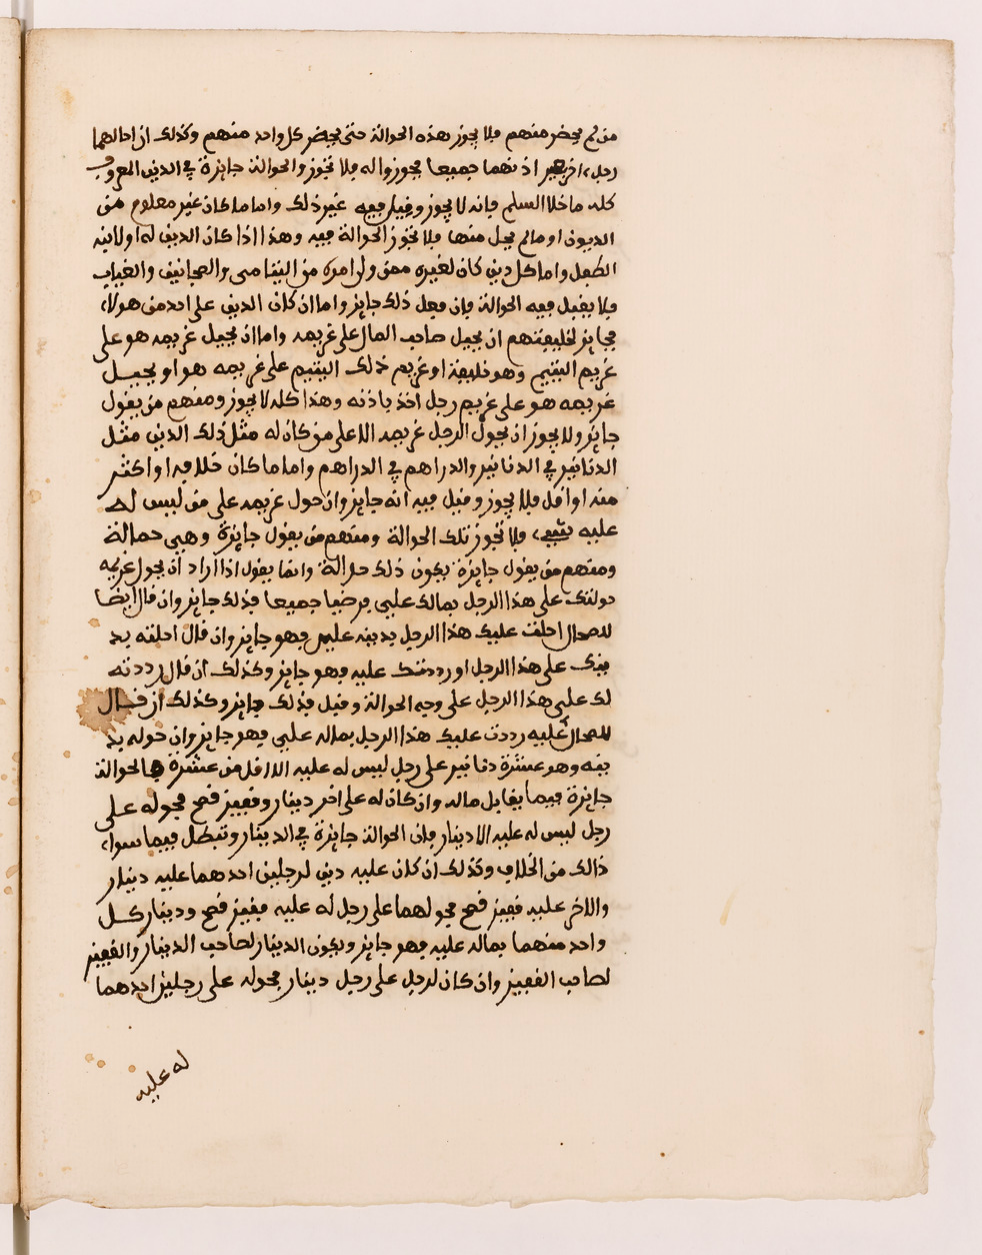 من لم يحضر منهم فلا يجوز هذه الحوالة حتى يحضر كل واحد منهم وكذلك ان احالهما
رجل اخر بغير اذنهما جميعا فجوزوا له فلا تجوز والحوالة جايزة في الدين المعروف
كله ما خلا السلم فانه لا يجوز وقيل فيه غير ذلك واما ما كان غير معلوم من
الديون او ما لم يحل منها فلا تجوز الحوالة فيه وهذا اذا كان الدين له او لابنه
الطفل واما كل دين كان لغيره ممن ولي امره من اليتامى والمجانين والغياب
فلا يفعل فيه الحوالة فان فعل ذلك جايز واما ان كان الدين على احد من هولاء
فجايز لخليفتهم ان يحيل صاحب المال على غريمه واما ان يحيل غريمه هو على
غريم اليتيم وهو خليفة او غريم ذلك اليتيم على غريمه هو او يحيل
غريمه هو على غريم رجل اخذ باذنه وهذا كله لا يجوز ومنهم من يقول
جايز ولا يجوز ان يحول الرجل غريمه الا على من كان له مثل ذلك الدين مثل
الدنانير في الدنانير والدراهم في الدراهم واما ما كان خلافه او اكثر
منه او اقل فلا يجوز وقيل فيه انه جايز وان حول غريمه على من ليس له
عليه شيء فلا تجوز تلك الحوالة ومنهم من يقول جايزة وهي حمالة
ومنهم من يقول جايزة يكون ذلك حوالة وانما يقول اذا اراد ان يحول غريمه
حولتك على هذا الرجل بمالك علي فرضيا جميعا فذلك جايز وان قال ايضا
للمحال احلت عليك هذا الرجل بدينه علي فهو جايز وان قال احلته بد
ينك على هذا الرجل او رددتك عليه فهو جايز وكذلك ان قال رددته
لك على هذا الرجل على وجه الحوالة وقيل فذلك جايز وكذلك ان قال
للمحال عليه رددت عليك هذا الرجل بماله علي فهو جايز وان حوله بد
ينه وهو عشرة دنانير على رجل ليس له عليه الا اقل من عشرة فالحوالة
جايزة فيما يقابل ماله وان كان له على اخر دينار وقفيز قمح فحوله على
رجل ليس له عليه الا دينار فان الحوالة جايزة في الدينار وتبطل فيما سواء
ذالك من الخلاف وكذلك ان كان عليه دين لرجلين احدهما عليه دينار
والاخر عليه قفيز قمح فحولهما على رجل له عليه قفيز قمح ودينار كل
واحد منهما بماله عليه فهو جايز ويكون الدينار لصاحب الدينار والقفيز
لصاحب القفيز وان كان لرجل على رجل دينار فحوله على رجلين احدهما
له عليه